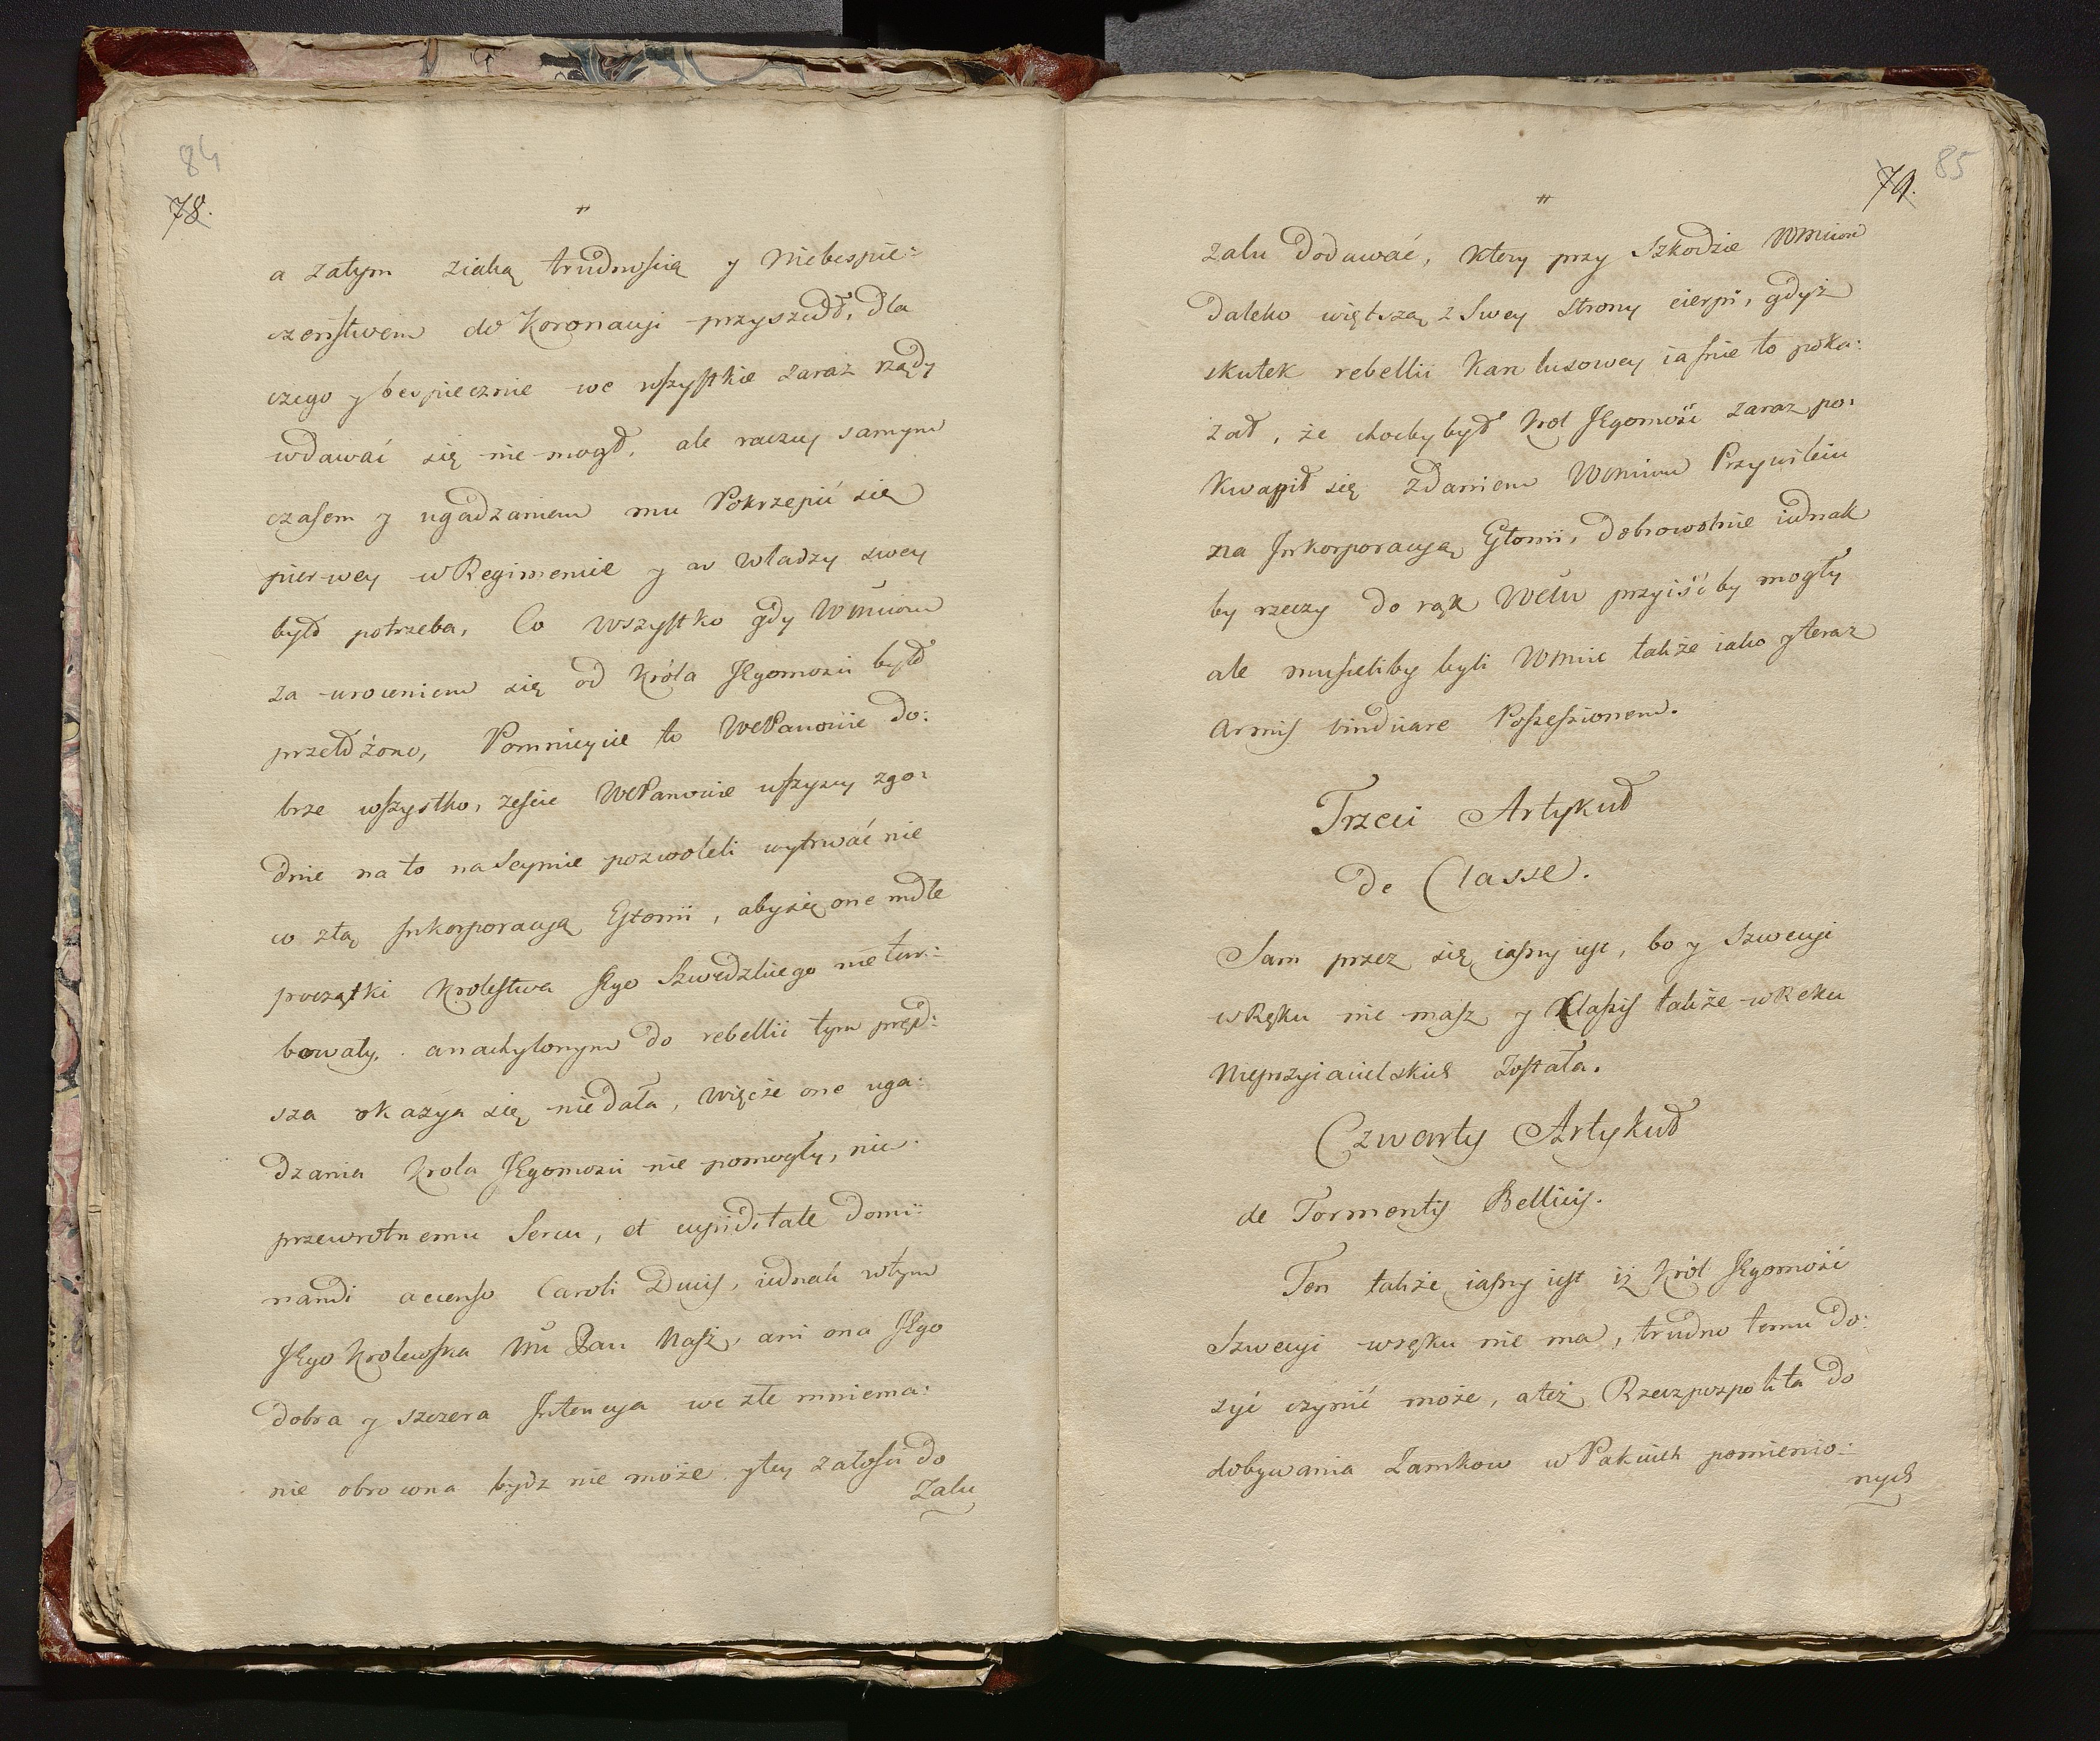 84
78.
"
a zatym ziaką trudnością y Niebespie:
czeństwem do Koronacyi przyszedł, dla
czego y bespiecznie we wszystkie zaraz rządy
wdawać się nie mogł, ale raczey samym
czasem y ugadzaniem mu Pokrzepić się
pierwey w Regimencie y w władzy swey
było potrzeba, Co wszystko gdy Wmciom
za wroceniem się od Króla JEgomosci było
przełożono, Pomnicycie to WcPanowie do:
brze wszystko, żeście WcPanowie wszyscy zgo:
dnie na to na Seymie pozwoleli wytrwać nie
w złą Jnkorporacyą Estonii, aby się one mdłe
początki Krolestwa JEgo Szwedzkiego nie tur:
bowały, a nachylonym do rebellii tym pręd:
sza okazya się nie dała, więc że one uga:
dzania Krola JEgomosci nie pomogły, nic
przewrotnemu Sercu, et cupiditate domi:
nandi accenso Caroli Ducis, iednak wtym
JEgo Krolewska Mć Pan Nasz, ani ona JEgo
dobra y szczera Jntencya we złe mniema:
nie obrocona bydz nie może y tey żałości do
Zalu
85
79.
"
zalu dodawać, ktory przy Szkodzie Wmciow
daleko więtszą z Swey Strony cierpi, gdyż
skutek rebellii Karolusowey iaśnie to poka:
zał, że choćby był Krol JEgomość zaraz po:
kwapił się zdaniem Wmciom Przywileiu
na Jnkorporacyą Estonii, dobrowolnie iednak
by rzeczy do rąk Wćiw przyiść by mogły
ale musieliby byli Wmcie także iako y teraz
armis vindicare Possessionem.
Trzeci Artykuł
de Classe.
Sam przez się iasny iest, bo y Szwecyi
w Ręku nie masz y Klassis także w Reku
Nieprzyiacielskich została.
Czwarty Artykuł
de Tormentis Bellicis.
Ten także iasny iest iż Król JEgomość
Szwecyi w ręku nie ma, trudno temu do:
syć czynić może, a też Rzeczpospolita do
dobywania Zamkow w Paktach pomienio:
nych